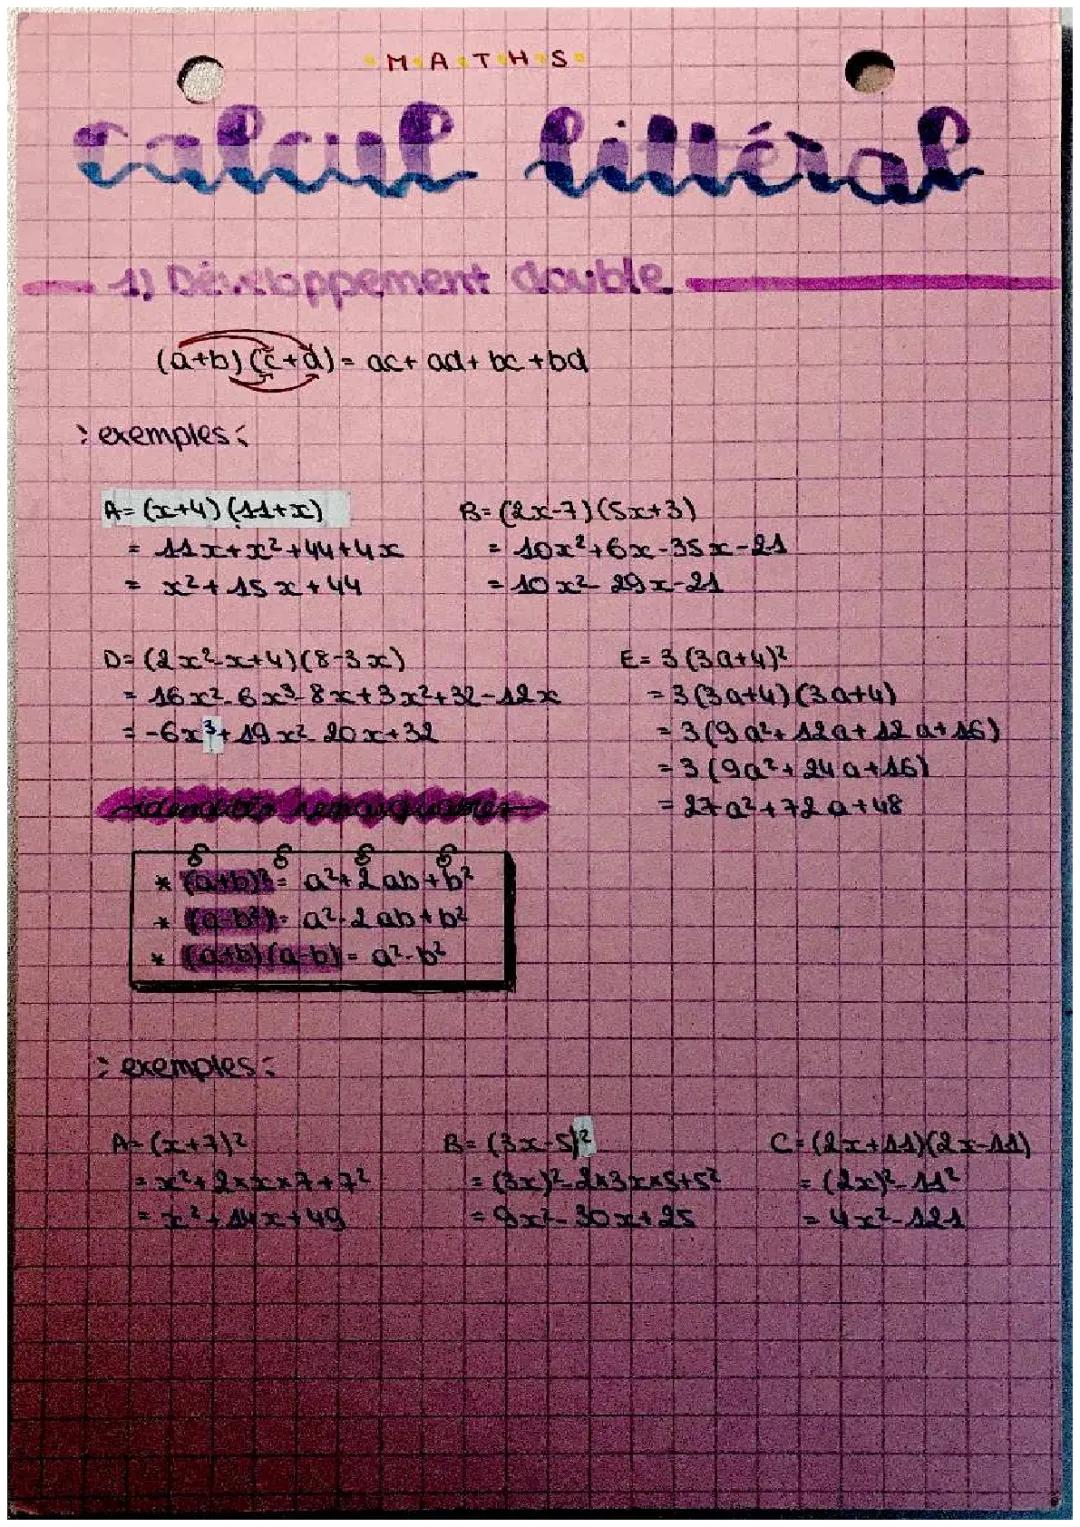 MATHS
calcul littéral
1) Développement double
(a+b)(c+d) = ac + ad + bc + bd
exemples:
A= (x+4)(11+x)
= 11x+x²+44+4x
= x²+15x+44
B= (2x-7)(5x+3)
= 10x²+6x-35x-21
= 10x²-29x-21
D= (2x²-x+4)(8-3x)
= 16x²-6x³-8x+3x²+32-12x
= -6x³+19x²-20x+32
E= 3(3a+4)²
= 3(3a+4)(3a+4)
= 3(9a²+12a+12a+16)
= 3(9a²+24a+16)
= 27a²+72a+48
identités remarquables
* (a+b)² = a²+2ab+b²
* (a-b²) = a²-2ab+b²
* (a+b)(a-b) = a²-b²
exemples:
A= (x+7)²
= x²+2×x×7+7²
= x²+14x+49
B= (3x-5)²
= (3x)²-2×3x×5+5²
= 9x²-30x+25
C= (2x+11)(2x-11)
= (2x)²-11²
= 4x²-121